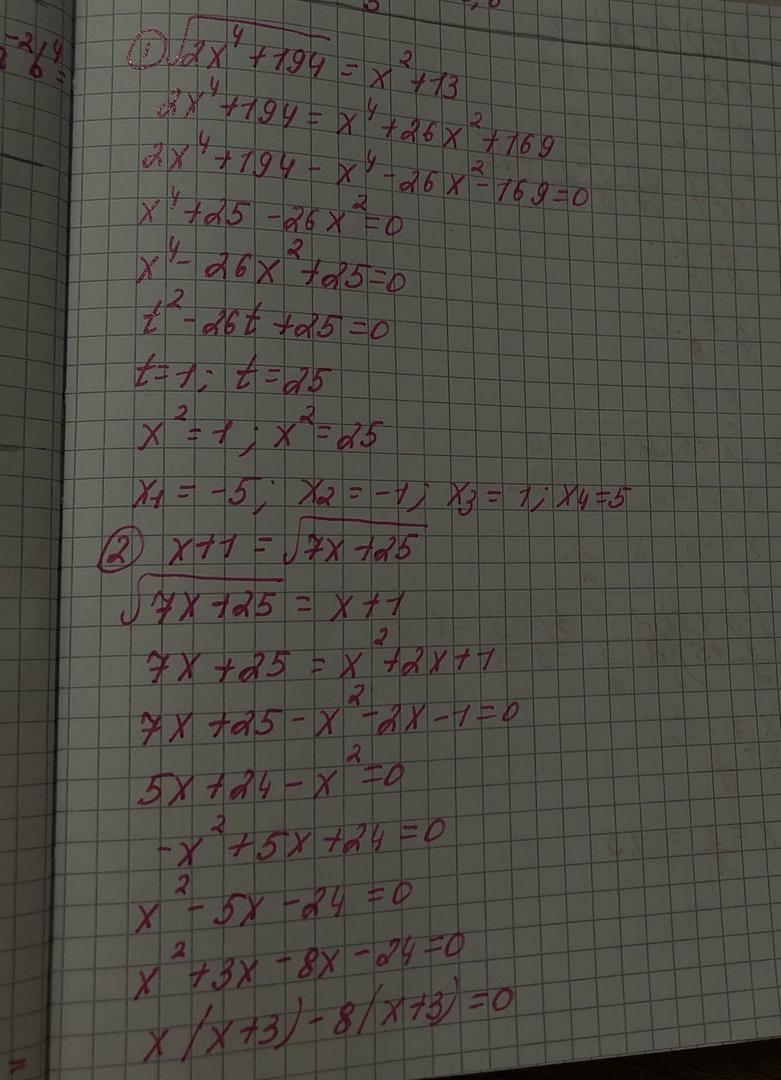 ① √(2x⁴+194) = x²+13
2x⁴+194 = x⁴+26x²+169
2x⁴+194 - x⁴-26x²-169=0
x⁴+25-26x²=0
x⁴-26x²+25=0
t²-26t+25=0
t=1; t=25
x²=1; x²=25
x₁ = -5; x₂ = -1; x₃ = 1; x₄=5
② x+1 = √(7x+25)
√(7x+25) = x+1
7x+25 = x²+2x+1
7x+25-x²-2x-1=0
5x+24-x²=0
-x²+5x+24=0
x²-5x-24=0
x²+3x-8x-24=0
x(x+3)-8(x+3)=0